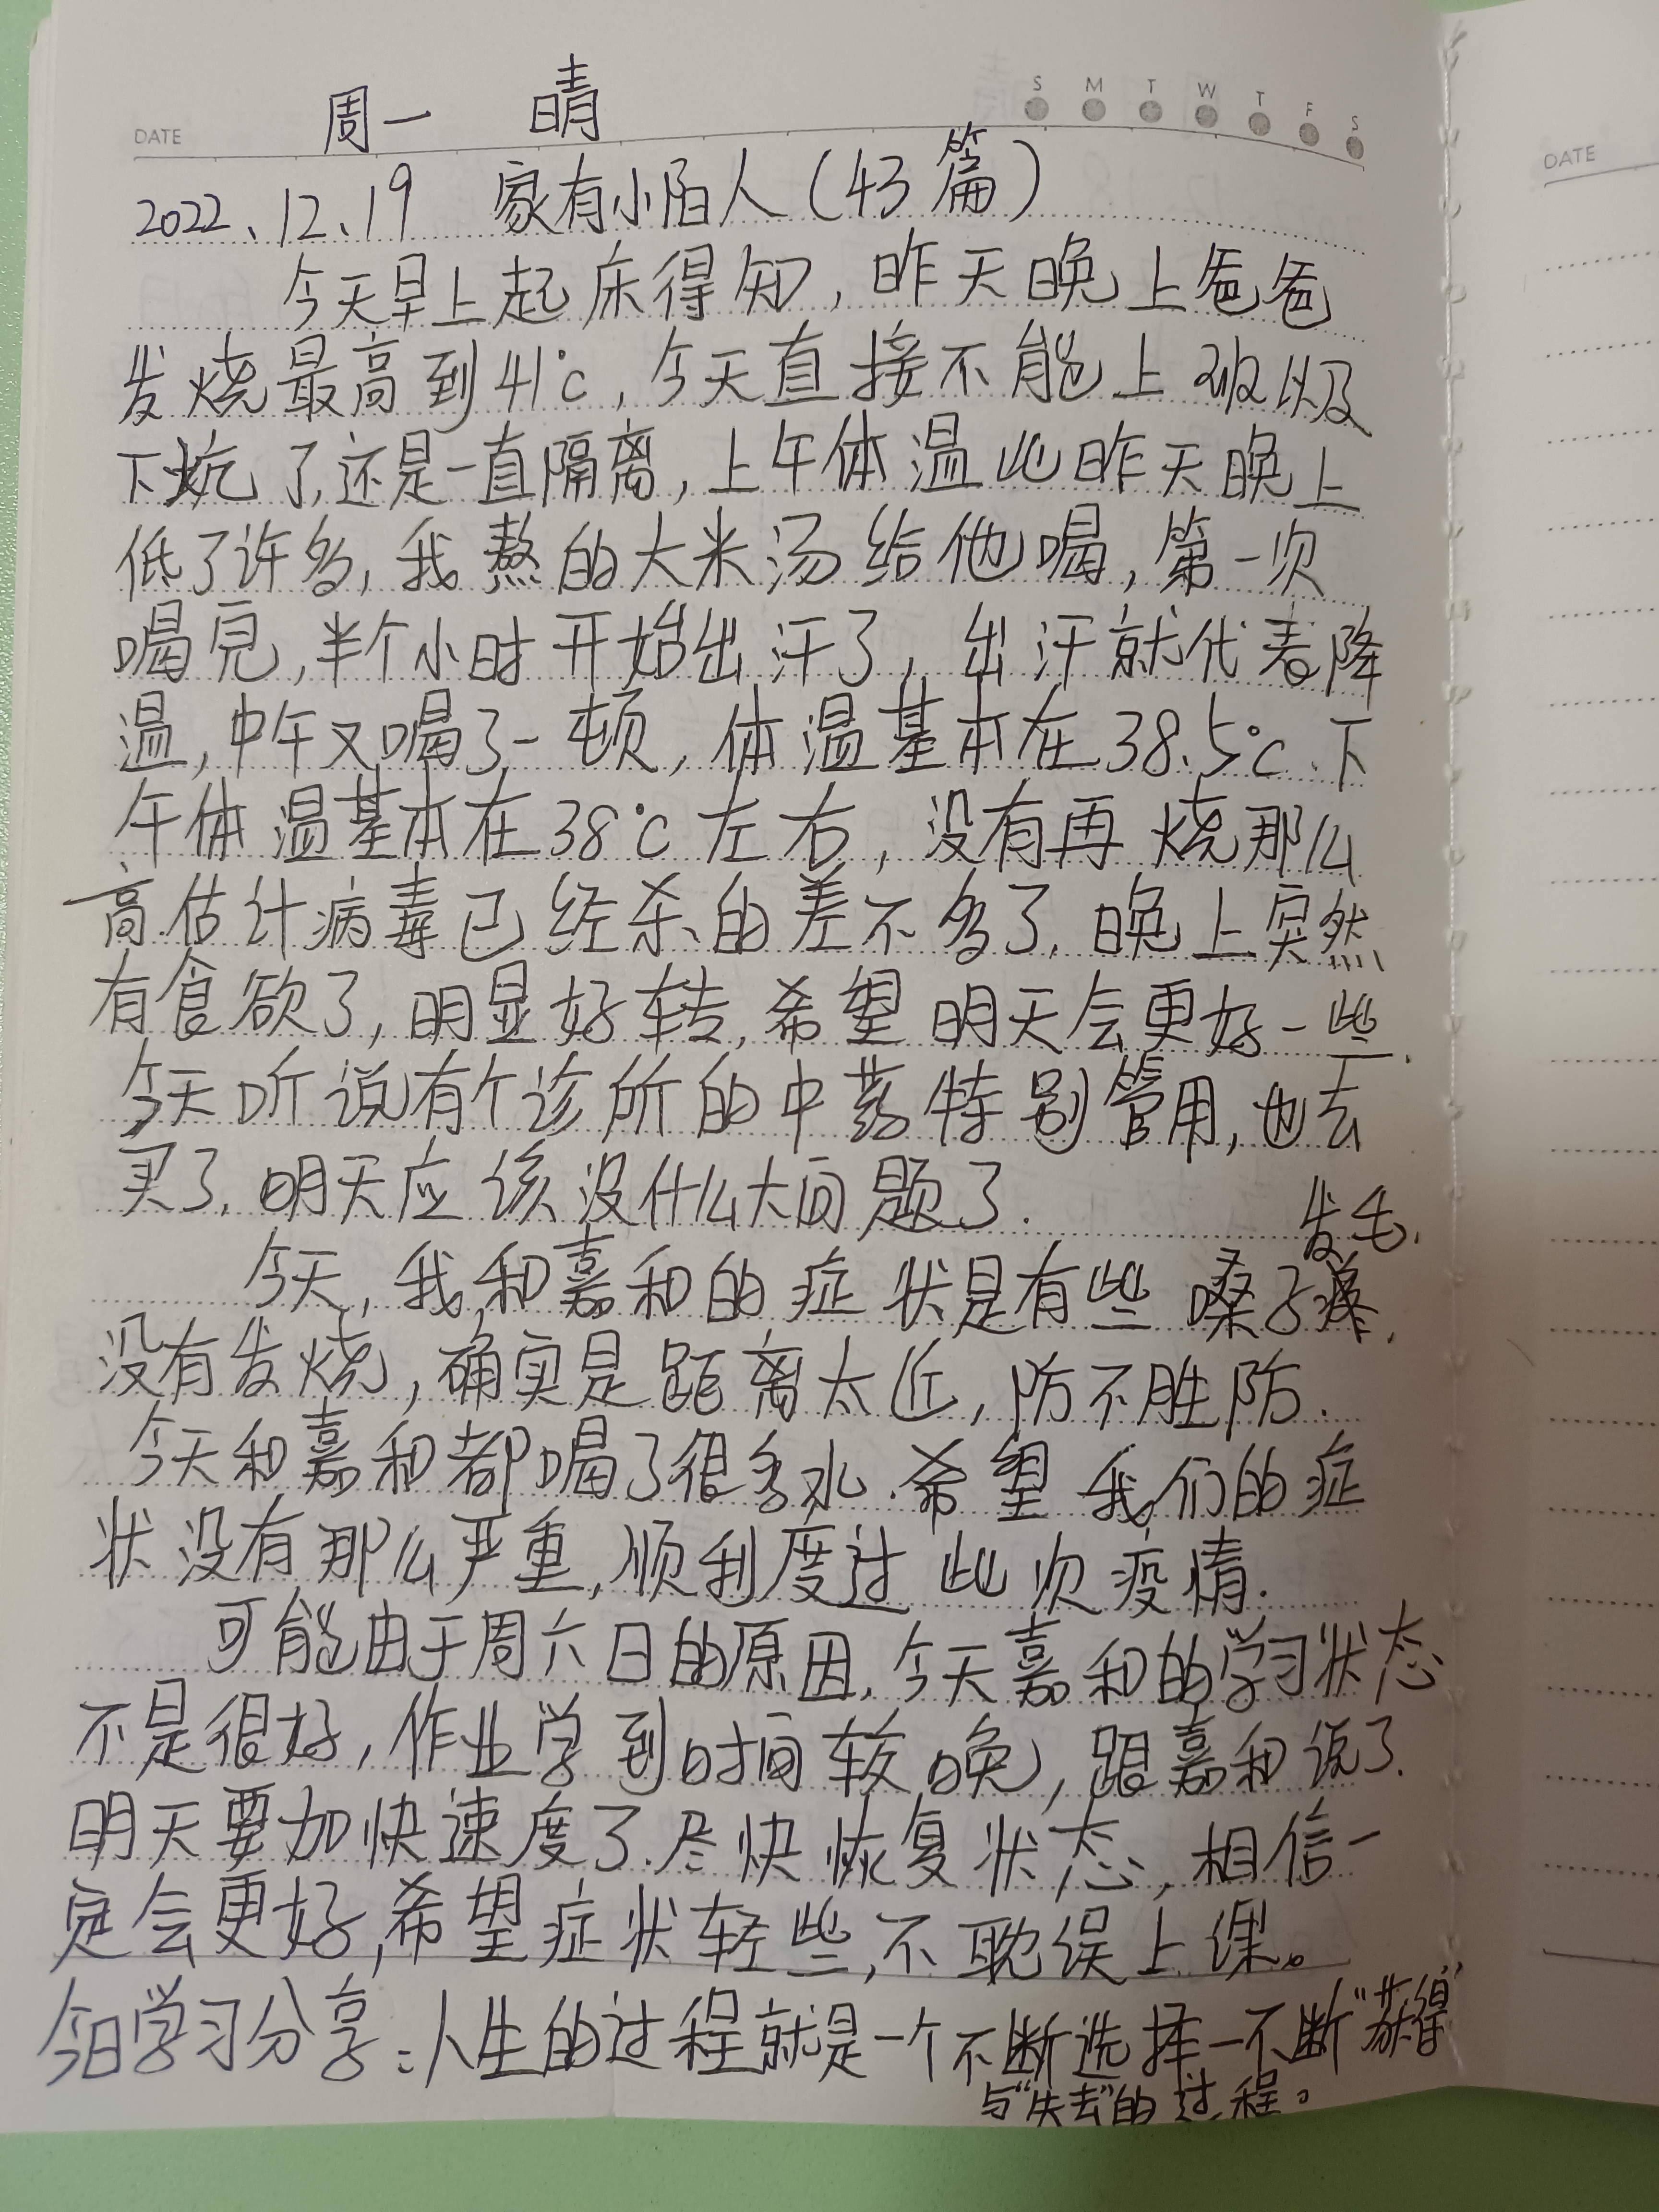 周一 晴
S M T W T F S
DATE
2022、12、19 家有小陌人(43篇)
今天早上起床得知,昨天晚上爸爸
发烧最高到41℃,今天直接不能上 以及
下炕了,还是一直隔离,上午体温比昨天晚上
低了许多,我熬的大米汤给他喝,第一次
喝完,半个小时开始出汗了,出汗就代表降
温,中午又喝了一顿,体温基本在38.5℃.下
午体温基本在38℃左右,没有再烧那么
高.估计病毒已经杀的差不多了.晚上突然
有食欲了,明显好转,希望明天会更好一些.
今天听说有个诊所的中药特别管用,也去
买了.明天应该没什么大问题了.
发毛.
今天,我和嘉和的症状是有些嗓子疼.
没有发烧,确实是距离太近,防不胜防.
今天和嘉和都喝了很多水.希望我们的症
状没有那么严重,顺利度过此次疫情.
可能由于周六日的原因,今天嘉和的学习状态
不是很好,作业学到时间较晚,跟嘉和说了.
明天要加快速度了.尽快恢复状态,相信一
定会更好,希望症状轻些,不耽误上课。
今日学习分享:人生的过程就是一个不断选择一不断“获得”
与“失去”的过程。
DATE